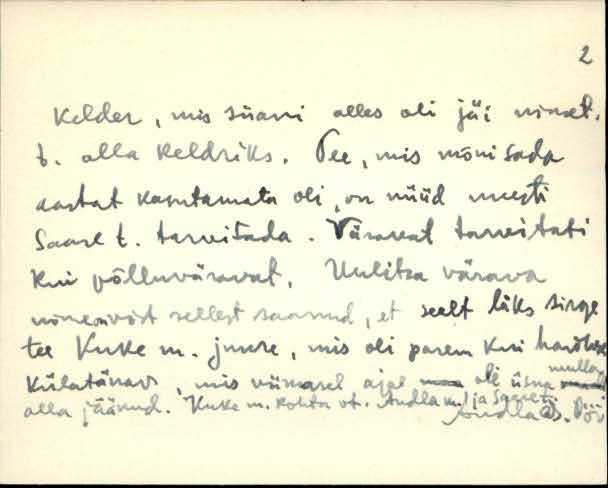 2
Kelder, mis siiani alles oli jäi nimet.
t. alla keldriks. Tee, mis mõnisada
aastat kasutamata oli, on nüüd uuesti
Saare t. tarvitada. Väravat tarvitati
kui põlluväravat. Uulitsa värava
nimenvõrt sellest saanud, et seelt läks sirge
tee Kuke m. juure, mis oli parem kui harilik
külatänav, mis viimasel ajal oli üsna mulla
alla jäänud. Kuke m. kohta vt. Andla m. ja Saare t.
Andla